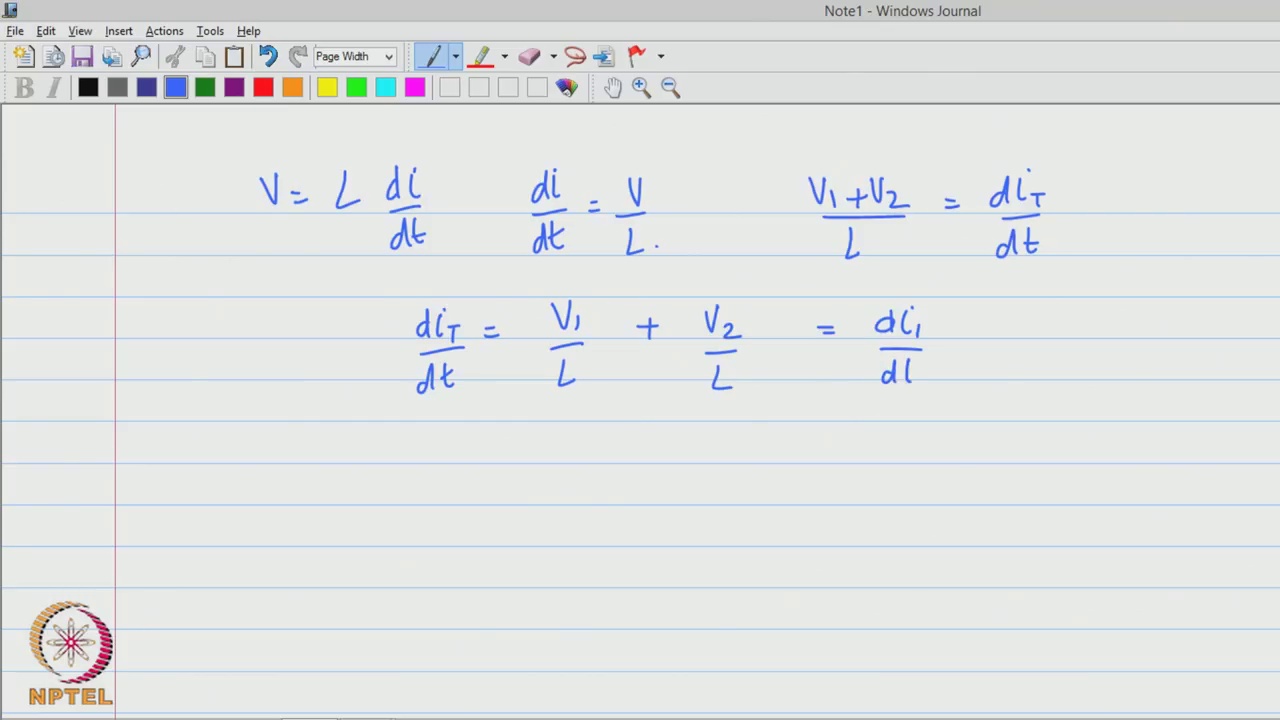 Note1 - Windows Journal
File Edit View Insert Actions Tools Help
Page Width
B I
V = L di/dt di/dt = V/L. V1+V2/L = diT/dt
diT/dt = V1/L + V2/L = di1/dl
NPTEL